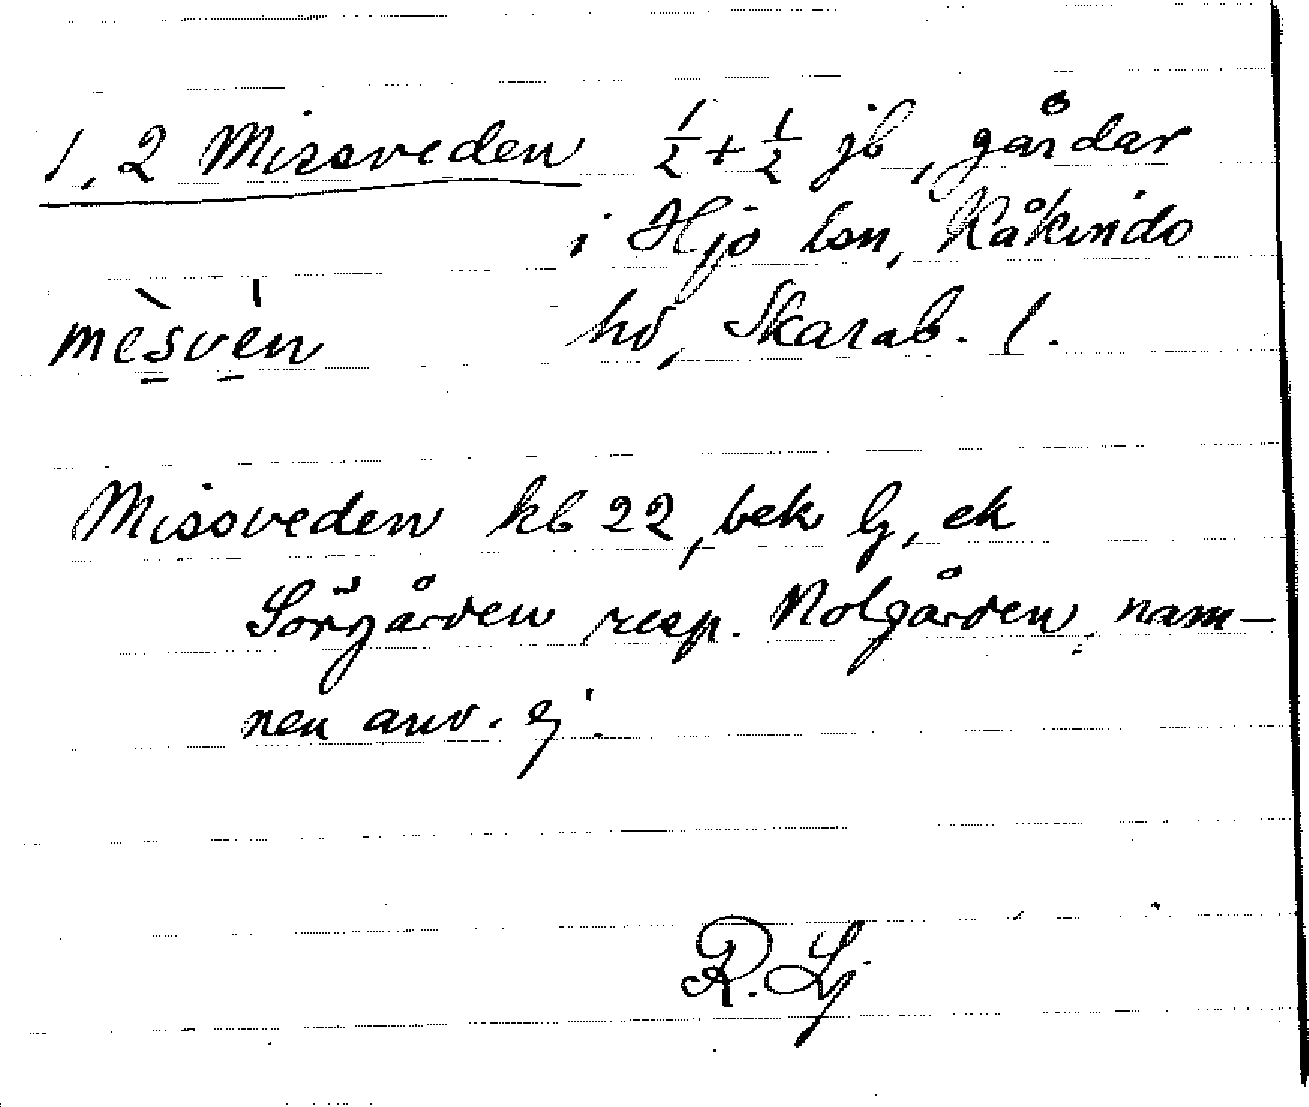 1, 2 Missveden ½+½ jb, gårdar
i Hjo lsn, Kåkinds
mèsvén hd, Skarab. l.
Missveden kb 22, bek lj, ek
Sörgården resp. Nolgården, nam-
nen anv. ej.
R. Lj